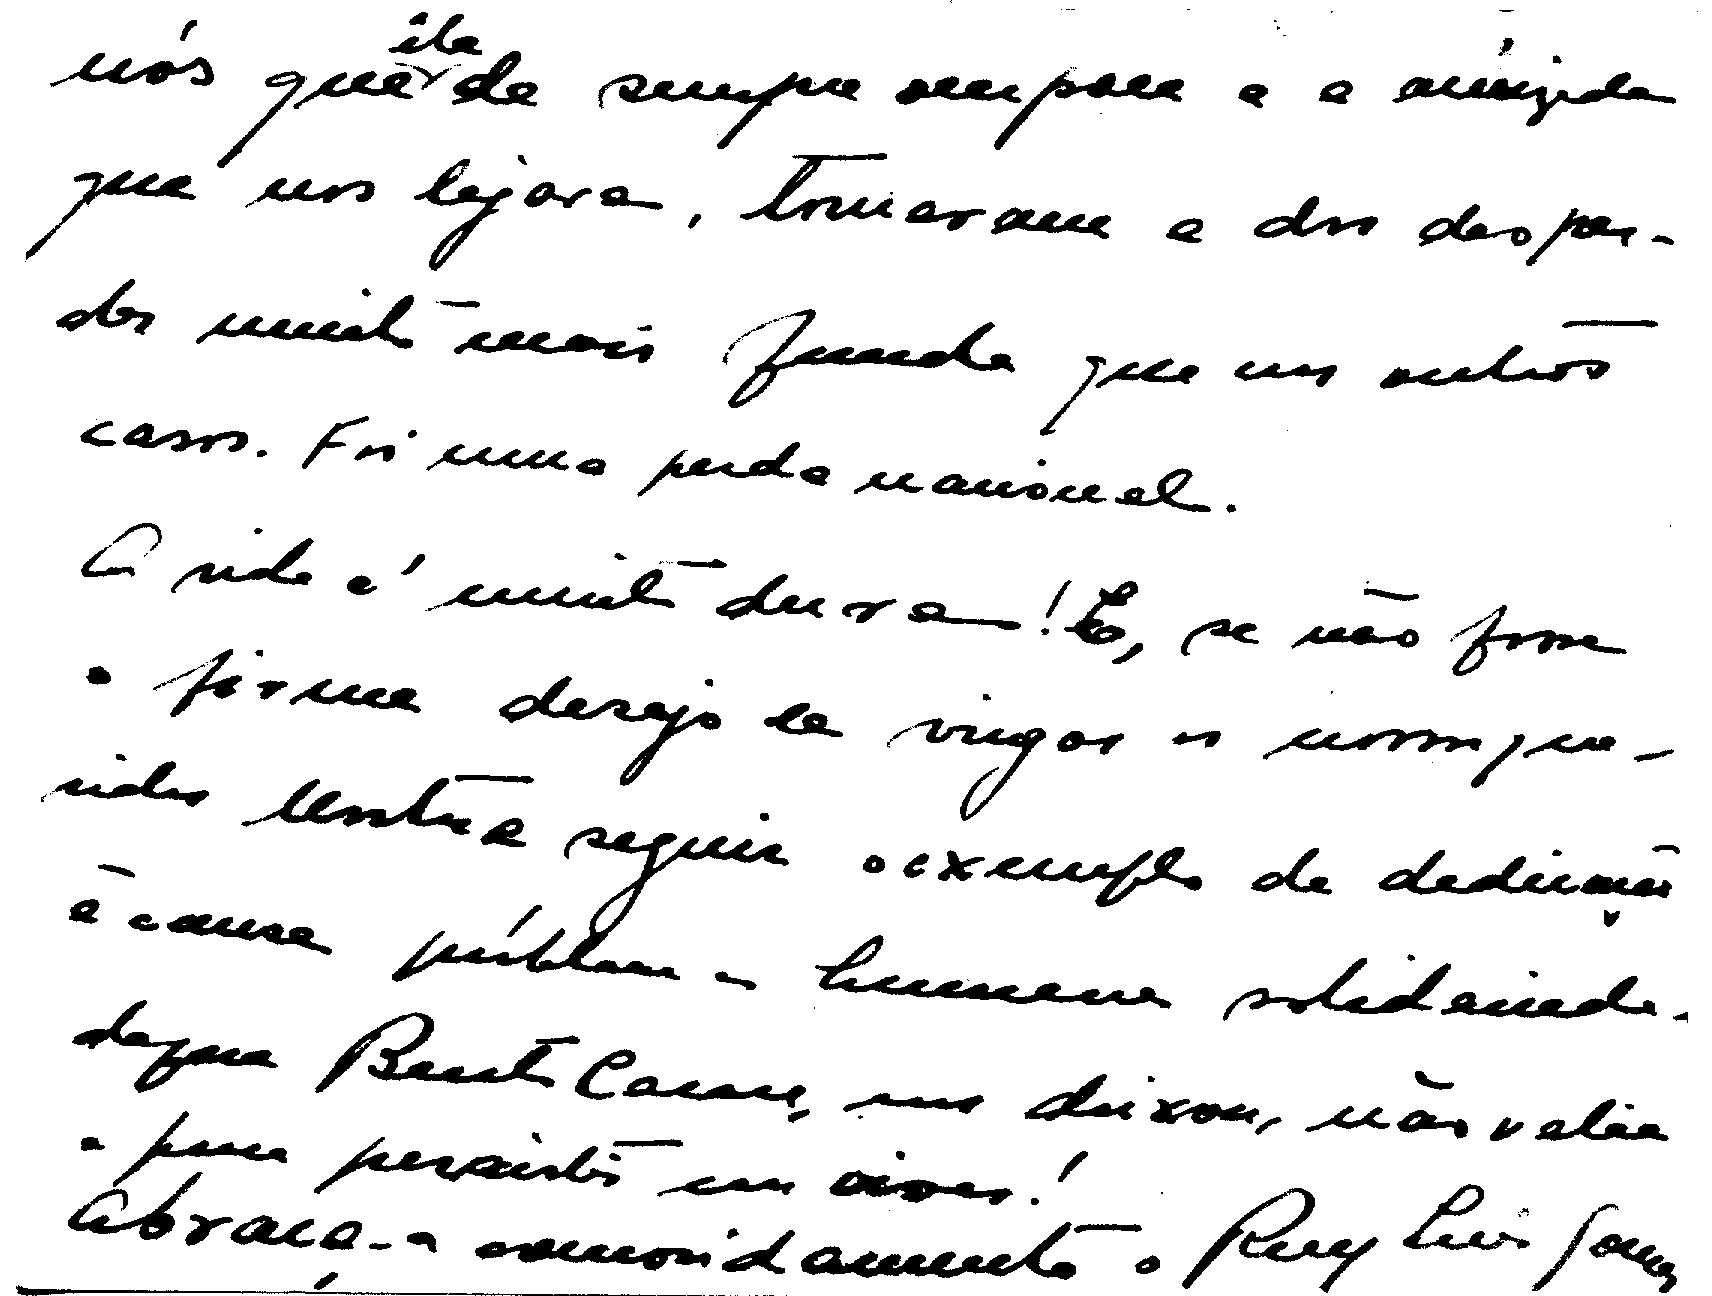 nós que ela de sempre ampara e a amizade
que nos ligava, tornaram a dor das par-
des muito mais funda que nos outros
casos. Foi uma perda nacional.
A vida é muito dura! E, se não fosse
o firme desejo de vingar os nossos que-
ridos mortos e seguir o exemplo de dedicação
à causa pública e humana solidarieda-
de que Bento Caraça, nos deixou, não valia
a pena persistir em viver!
Abraça-a comovidamente o Ruy Luís Gomes